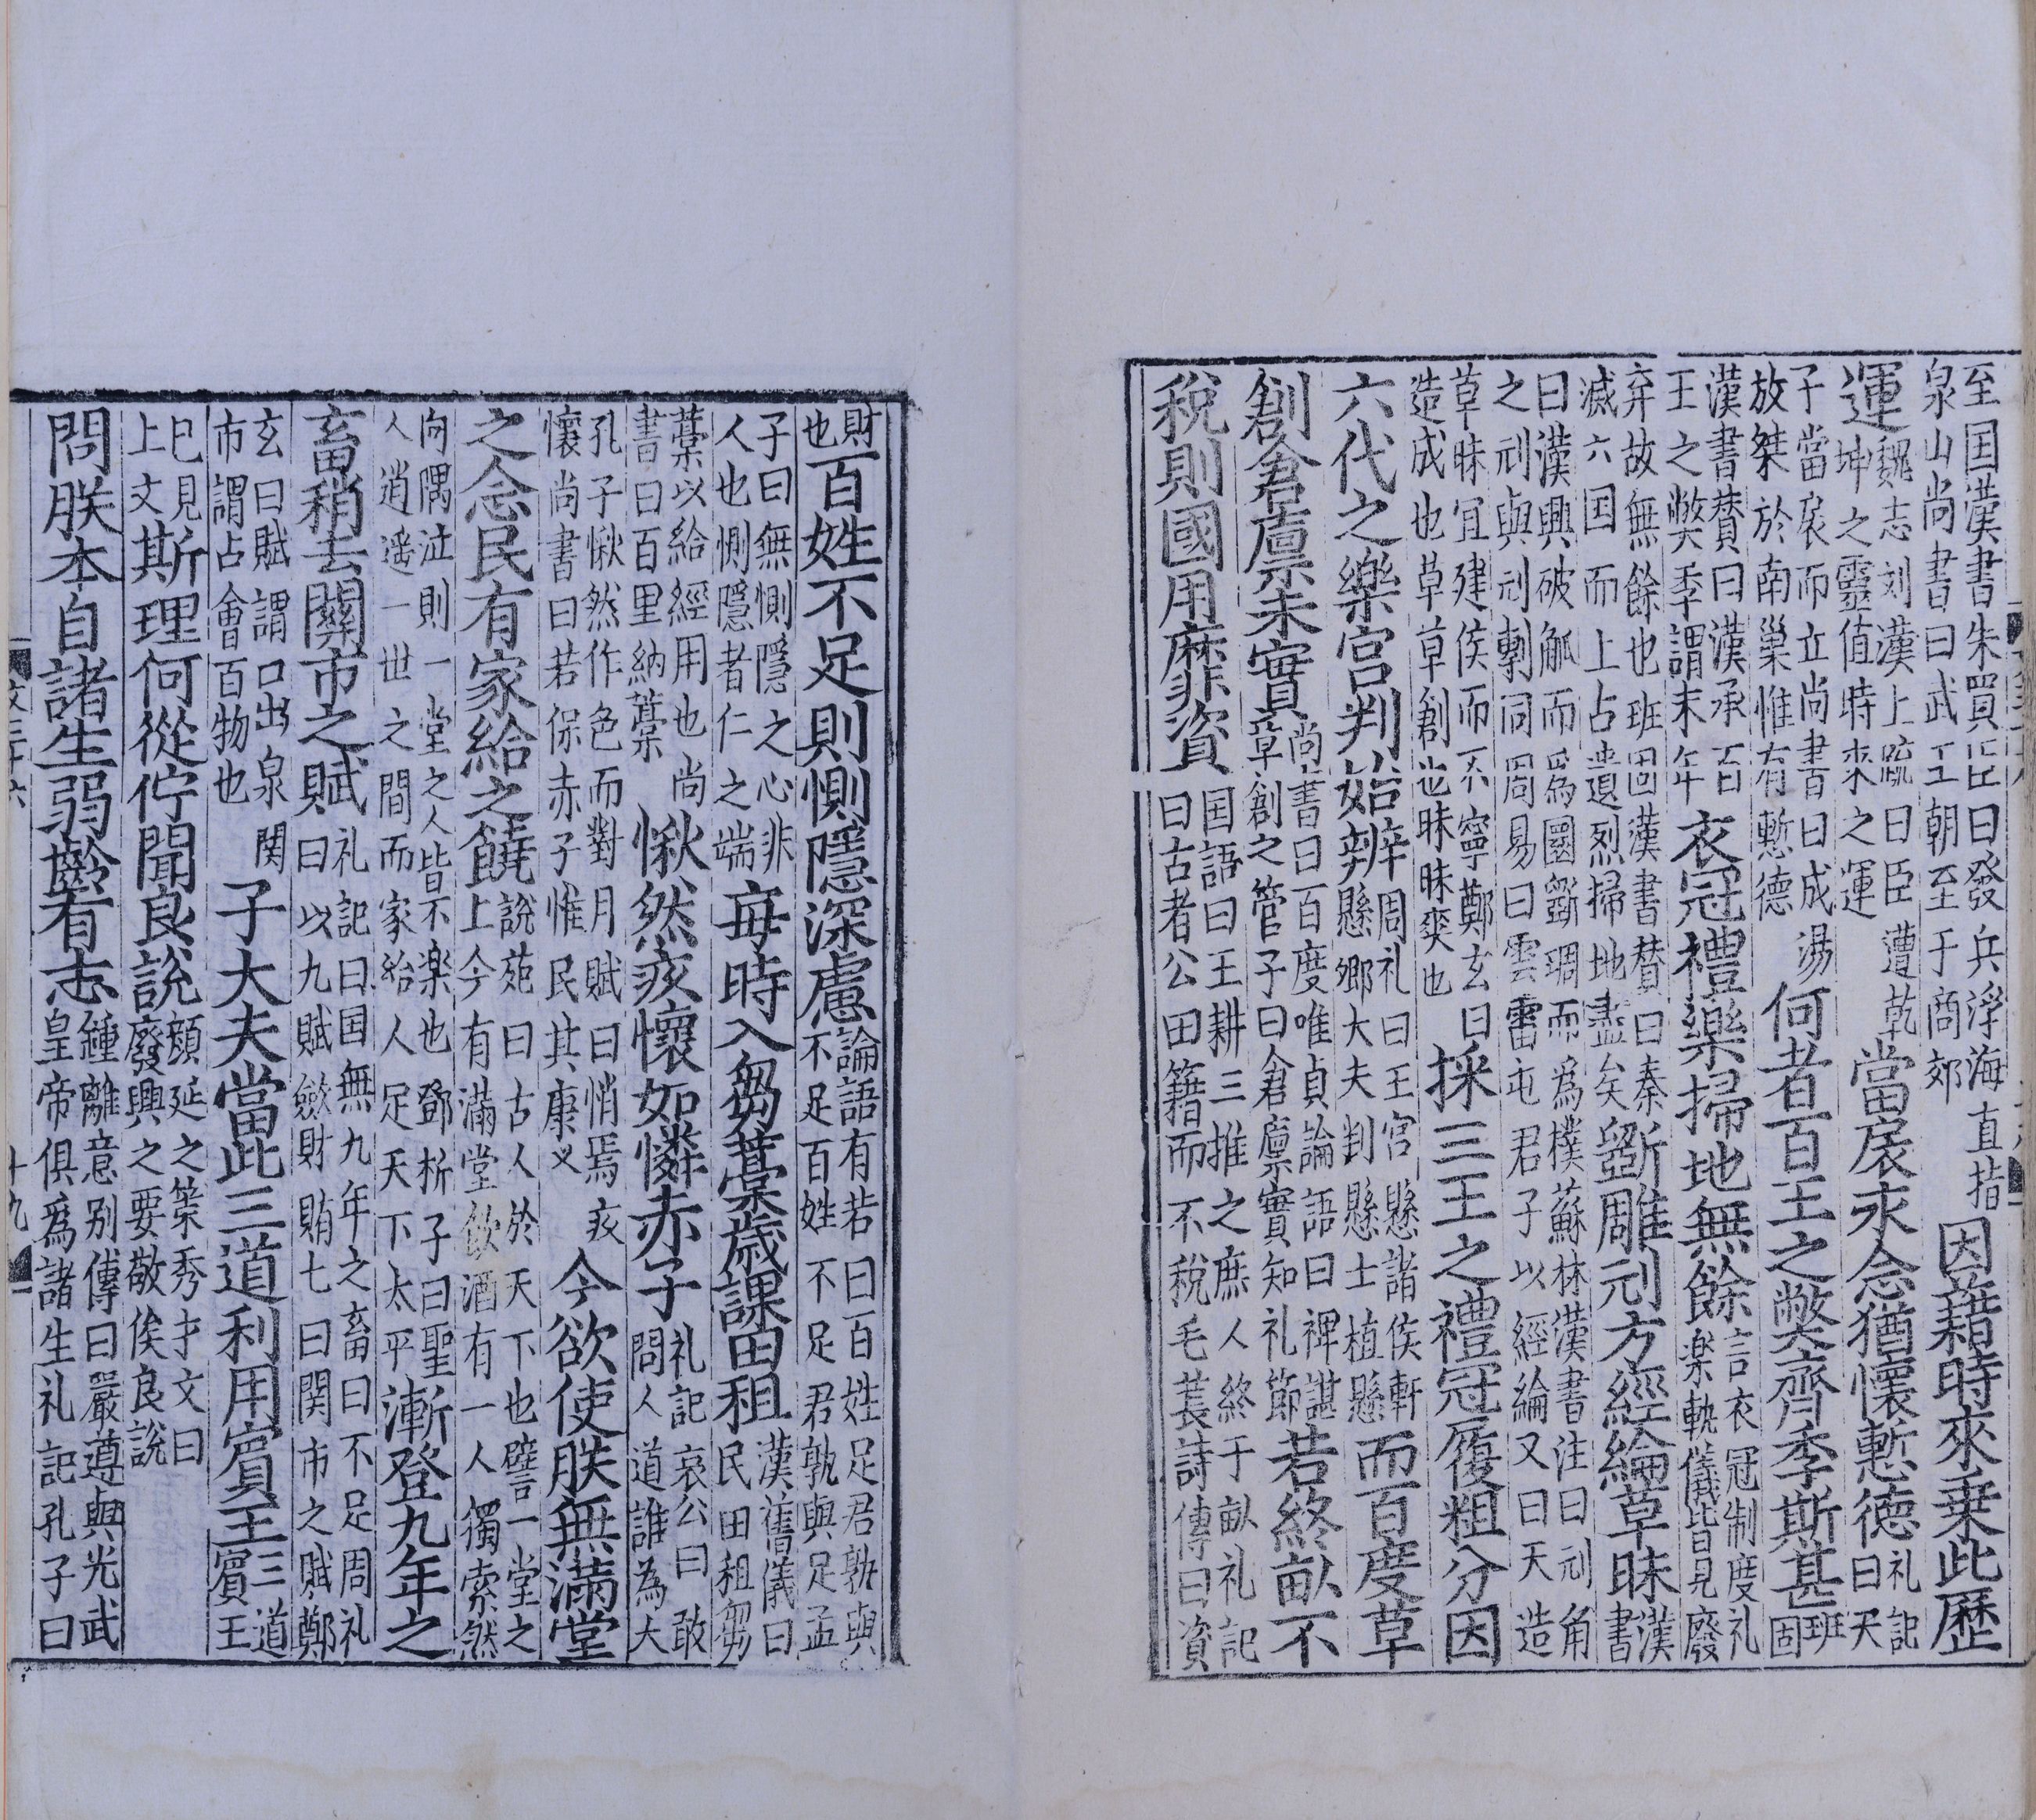 至国漢書朱買臣曰發兵浮海直指泉山尚書曰武王朝至于商郊因藉時來乗此歷
運魏志刘漢上疏曰臣遭乾坤之靈值時來之運當扆永念猶懷慙德礼記曰天
子當扆而立尚書曰成湯放桀於南巢惟有慙德何者百王之弊齊季斯甚班固
漢書賛曰漢承百王之弊季謂末年衣冠禮樂掃地無餘言衣冠制度礼楽軌儀皆見廢
弃故無餘也班固漢書賛曰秦滅六国而上占遺烈掃地盡矣斵雕刓方經綸草昧漢書
曰漢興破觚而爲圜斵琱而爲樸蘇林漢書注曰刓角之刓與刓剸同周易曰雲雷屯君子以經綸又曰天造
草昧冝建侯而不寧鄭玄曰造成也草草創也昧昧爽也採三王之禮冠履粗分因
六代之樂宮判始辨周礼曰王宮懸諸侯軒懸郷大夫判懸士植懸而百度草
創倉廩未實尚書曰百度唯貞論語曰裨諶草創之管子曰倉廩實知礼節若終畝不
稅則國用靡資国語曰王耕三推之庶人終于畝礼記曰古者公田籍而不稅毛萇詩傳曰資
財也百姓不足則惻隱深慮論語有若曰百姓足君孰與不足百姓不足君孰與足孟
子曰無惻隱之心非人也惻隱者仁之端毎時入芻藁歳課田租漢舊儀曰民田租芻
藁以給經用也尚書曰百里納藁愀然疚懷如憐赤子礼記哀公曰敢問人道誰為大
孔子愀然作色而對月賦曰悄焉疚懷尚書曰若保赤子惟民其康乂今欲使朕無滿堂
之念民有家給之饒說苑曰古人於天下也譬一堂之上今有滿堂飲酒有一人獨索然
向隅泣則一堂之人皆不楽也鄧析子曰聖人逍遥一世之間而家給人足天下太平漸登九年之
畜稍去關市之賦礼記曰国無九年之畜曰不足周礼曰以九賦斂財賄七曰関市之賦鄭
玄曰賦謂口出泉関市謂占會百物也子大夫當此三道利用賓王三道賓王
已見上文斯理何從佇聞良說顏延之策秀才文曰廢興之要敬俟良說
問朕本自諸生弱齡有志鍾離意别傳曰嚴遵與光武皇帝俱爲諸生礼記孔子曰